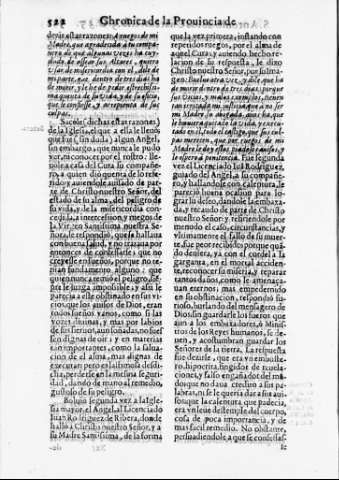 522 Chronica de la Provincia de
deyàs esta razones: A ruegos de mi
Madre, que agradecida a tu compa-
ñero de que algunas vezes ha cuy-
dado de assear sus Altares, quiero
vsar de misericordia con el, dile de
mi parte, que dentro de diez dias ha
de morir, y le he de pedir estrechissi-
ma quenta de su vida, y de su alma,
que se confiesse, y arrepienta de sus
culpas.
Sacòle (dichas estas razones)
de la Iglesia, el que a ella le lleuò,
que fue (sin duda) algun Angel,
sin embargo, que nunca le pudo
ver, ni conocer por el rostro:
pole a casa del Cura su compañe-
ro, a quien diò quenta de lo refe-
rido, y auiendole auisado de par-
te de Christo nuestro Señor, del
estado de su alma, del peligro de
su vida, y de la misericordia con-
cedida, a intercession, y ruegos de
la Virgen Santissima nuestra Se-
ñora, le respondiò, que se hallaua
con buena salud, y no trataua por
entonces de confessarse, que no
creyesse en sueños, porque no te-
nian fundamento alguno: que
quien nunca temiò el peligro, siem-
pre le juzga impossible, y assi le
parecia a este obstinado en sus vi-
cios, que los auisos de Dios, eran
todos sueños vanos, como si las
vozes diuinas, y mas por labios
de sus siervos, aun soñadas, no fues-
sen dignas de oir, y en materias
tan importantes, como la salua-
cion de el alma, mas dignas de
executar; pero en la vltima desdi-
cha, perderse en la misma seguri-
dad, dando de mano al remedio,
gustoso de su peligro.
Boluiò segunda vez a la Igle-
sia mayor, el Angel, al Licenciado
Iuan Rodriguez de Ribera, donde
hallò a Christo nuestro Señor, y a
su Madre Santissima, de la forma
que la vez primera, instando con
repetidos ruegos, por el alma de
aquel Cura, y auiendo hecho re-
lacion de su respuesta, le dixo
Christo nuestro Señor, por su ima-
gen: Buelue otra vez, y dile, que ha
de morir dentro de tres dias; porque
sus vicios, y malas costumbres, tienen
tan irritada mi justicia, que a no ser
mi Madre su abogada, dias ha, que
le huuiera quitado la vida, y execu-
tado en el, todo el castigo, que sus cul-
pas merecen, que por ruegos de mi
Madre le doy estos piadosos auisos, y
le espero a penitencia. Fue segunda
vez el Licenciado Iuã Rodriguez,
guiado del Angel, a su compañe-
ro, y hallandole con calentura, le
pareciò buena ocasion para lo-
grar su deseo, dandole la embaxa-
da, y recaudo de parte de Christo
nuestro Señor, y refiriendole por
menudo el caso, circunstancias, y
vltimamente el fallo de su muer-
te, fue peor recibido; porque quã-
do deuiera, ya con el cordel a la
garganta, en el mortal acciden-
te, reconocer su miseria, y reparar
tantos daños, como le amenaça-
uan eternos; mas empedernido
en su obstinacion, respondiò fu-
rioso, burlando del mensagero de
Dios, sin guardarle los fueros que
aun a los embaxadores, o Minis-
tros de los Reyes humanos, se de-
uen, y acostumbran guardar los
Señores de la tierra. La respuesta
fue dezirle, que era vn embuste-
ro, hipocrita, fingidor de reuela-
ciones, y falso engañador del mũ-
do; que no daua credito a sus pa-
labras, ni se le queria dar a sus aui-
sos; que la calentura que padecia,
era vn leue destemple del cuerpo,
cosa de poca importancia, y de
mas facil remedio. No obstante,
persuadiendole a que se confessas-
se